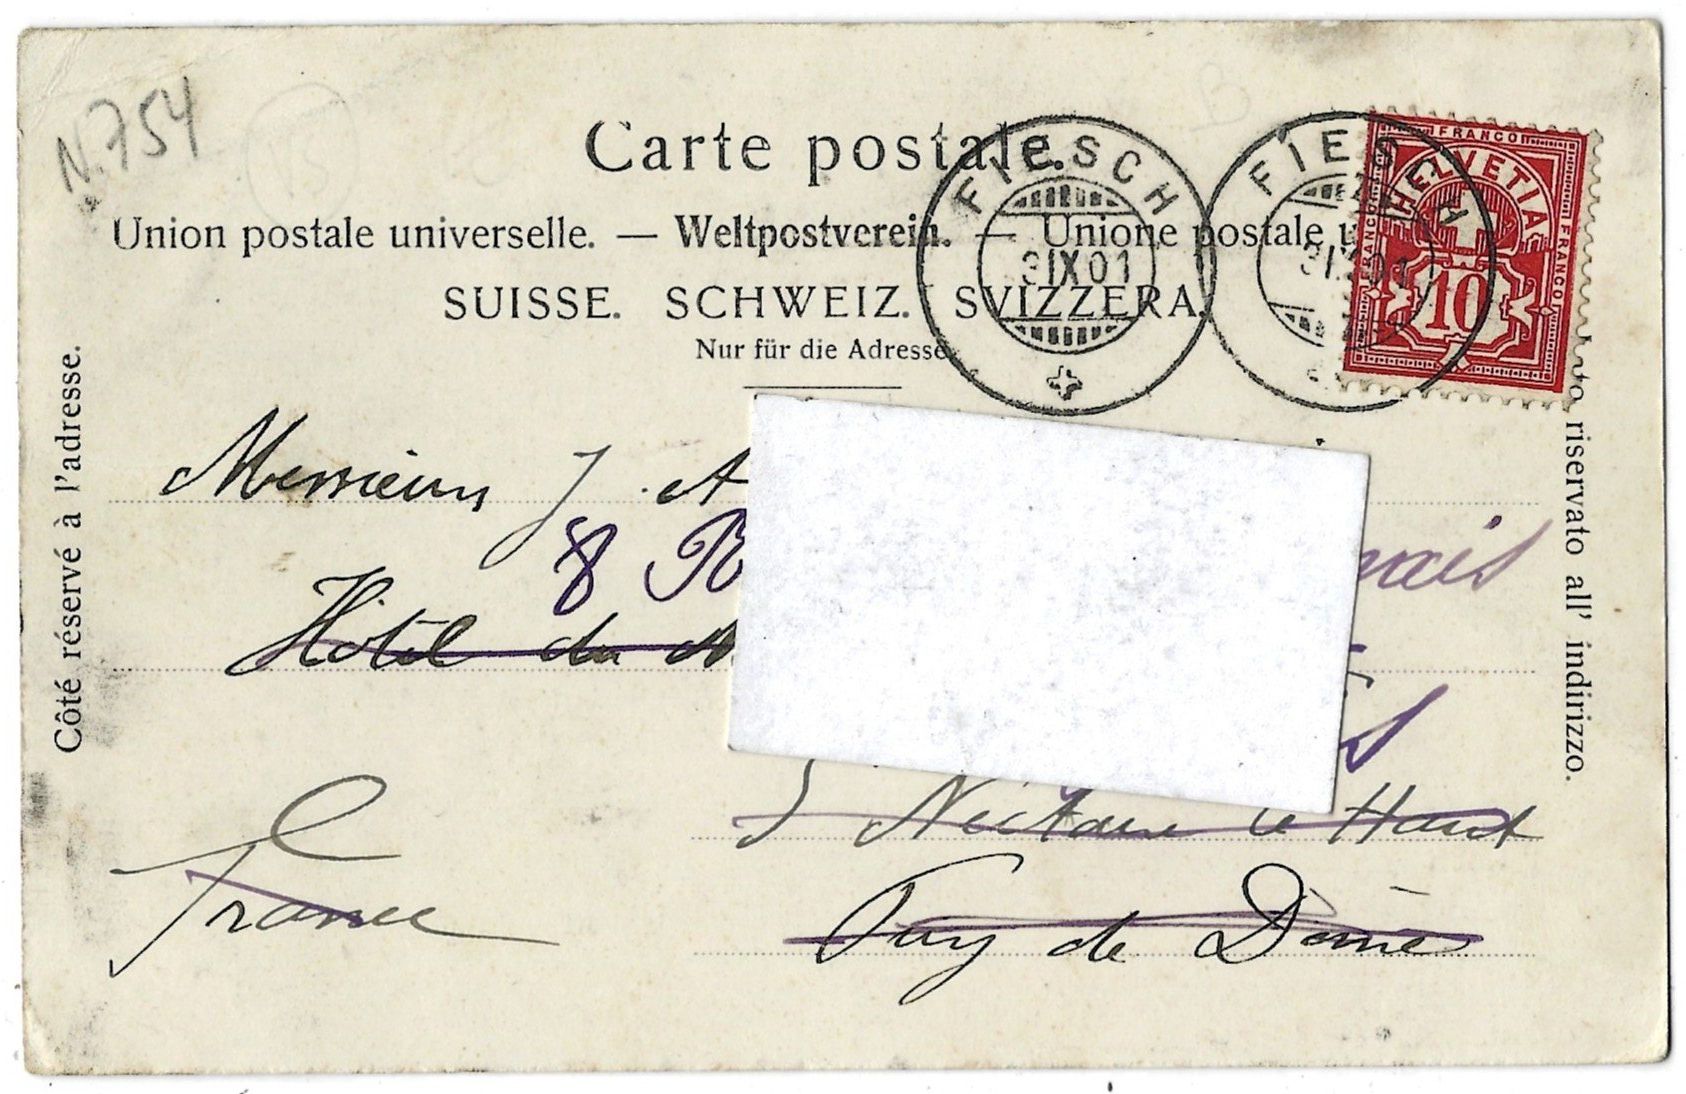 N. 754
Carte postale.
Union postale universelle. — Weltpostverein. — Unione postale u
SUISSE. SCHWEIZ. SVIZZERA.
Nur für die Adresse.
FIESCH
3 IX 01
FIESCH
3 IX 01
FRANCO
HELVETIA
FRANCO
FRANCO
10
Côté réservé à l'adresse.
riservato all' indirizzo.
Messieurs J. A
8 R
nais
Hôtel du
S Nectaire le Haut
Puy de Dôme
France